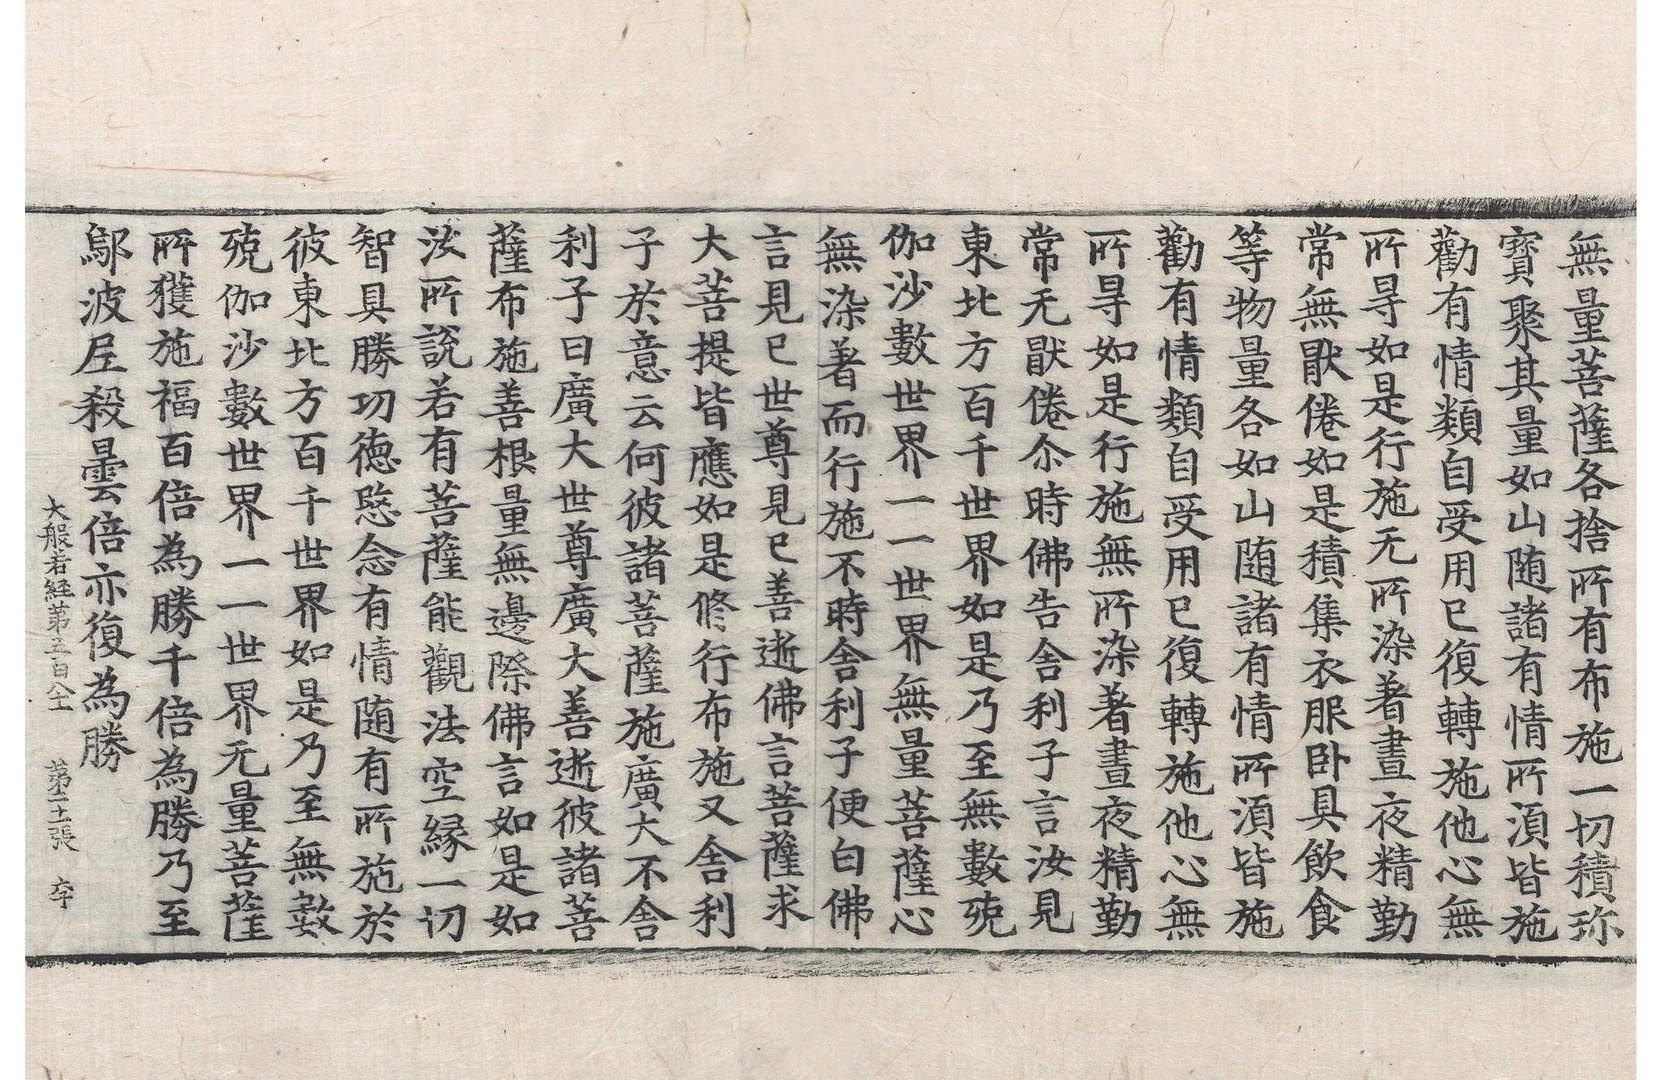 無量菩薩各捨所有布施一切積珎
寳聚其量如山随諸有情所湏皆施
勸有情類自受用已復轉施他心無
所㝵如是行施无所染著晝夜精勤
常無猒倦如是積集衣服卧具飲食
等物量各如山随諸有情所湏皆施
勸有情類自受用已復轉施他心無
所㝵如是行施無所染著晝夜精勤
常无猒倦尒時佛告舎利子言汝見
東北方百千世界如是乃至無數殑
伽沙數世界一一世界無量菩薩心
無染著而行施不時舎利子便白佛
言見已世尊見已善逝佛言菩薩求
大菩提皆應如是修行布施又舎利
子於意云何彼諸菩薩施廣大不舎
利子曰廣大世尊廣大善逝彼諸菩
薩布施善根量無邊際佛言如是如
汝所說若有菩薩能觀法空縁一切
智具勝功徳愍念有情随有所施於
彼東北方百千世界如是乃至無數
殑伽沙數世界一一世界无量菩薩
所獲施福百倍為勝千倍為勝乃至
鄔波尼殺曇倍亦復為勝
大般若経第五百八十一　第二十二張　李